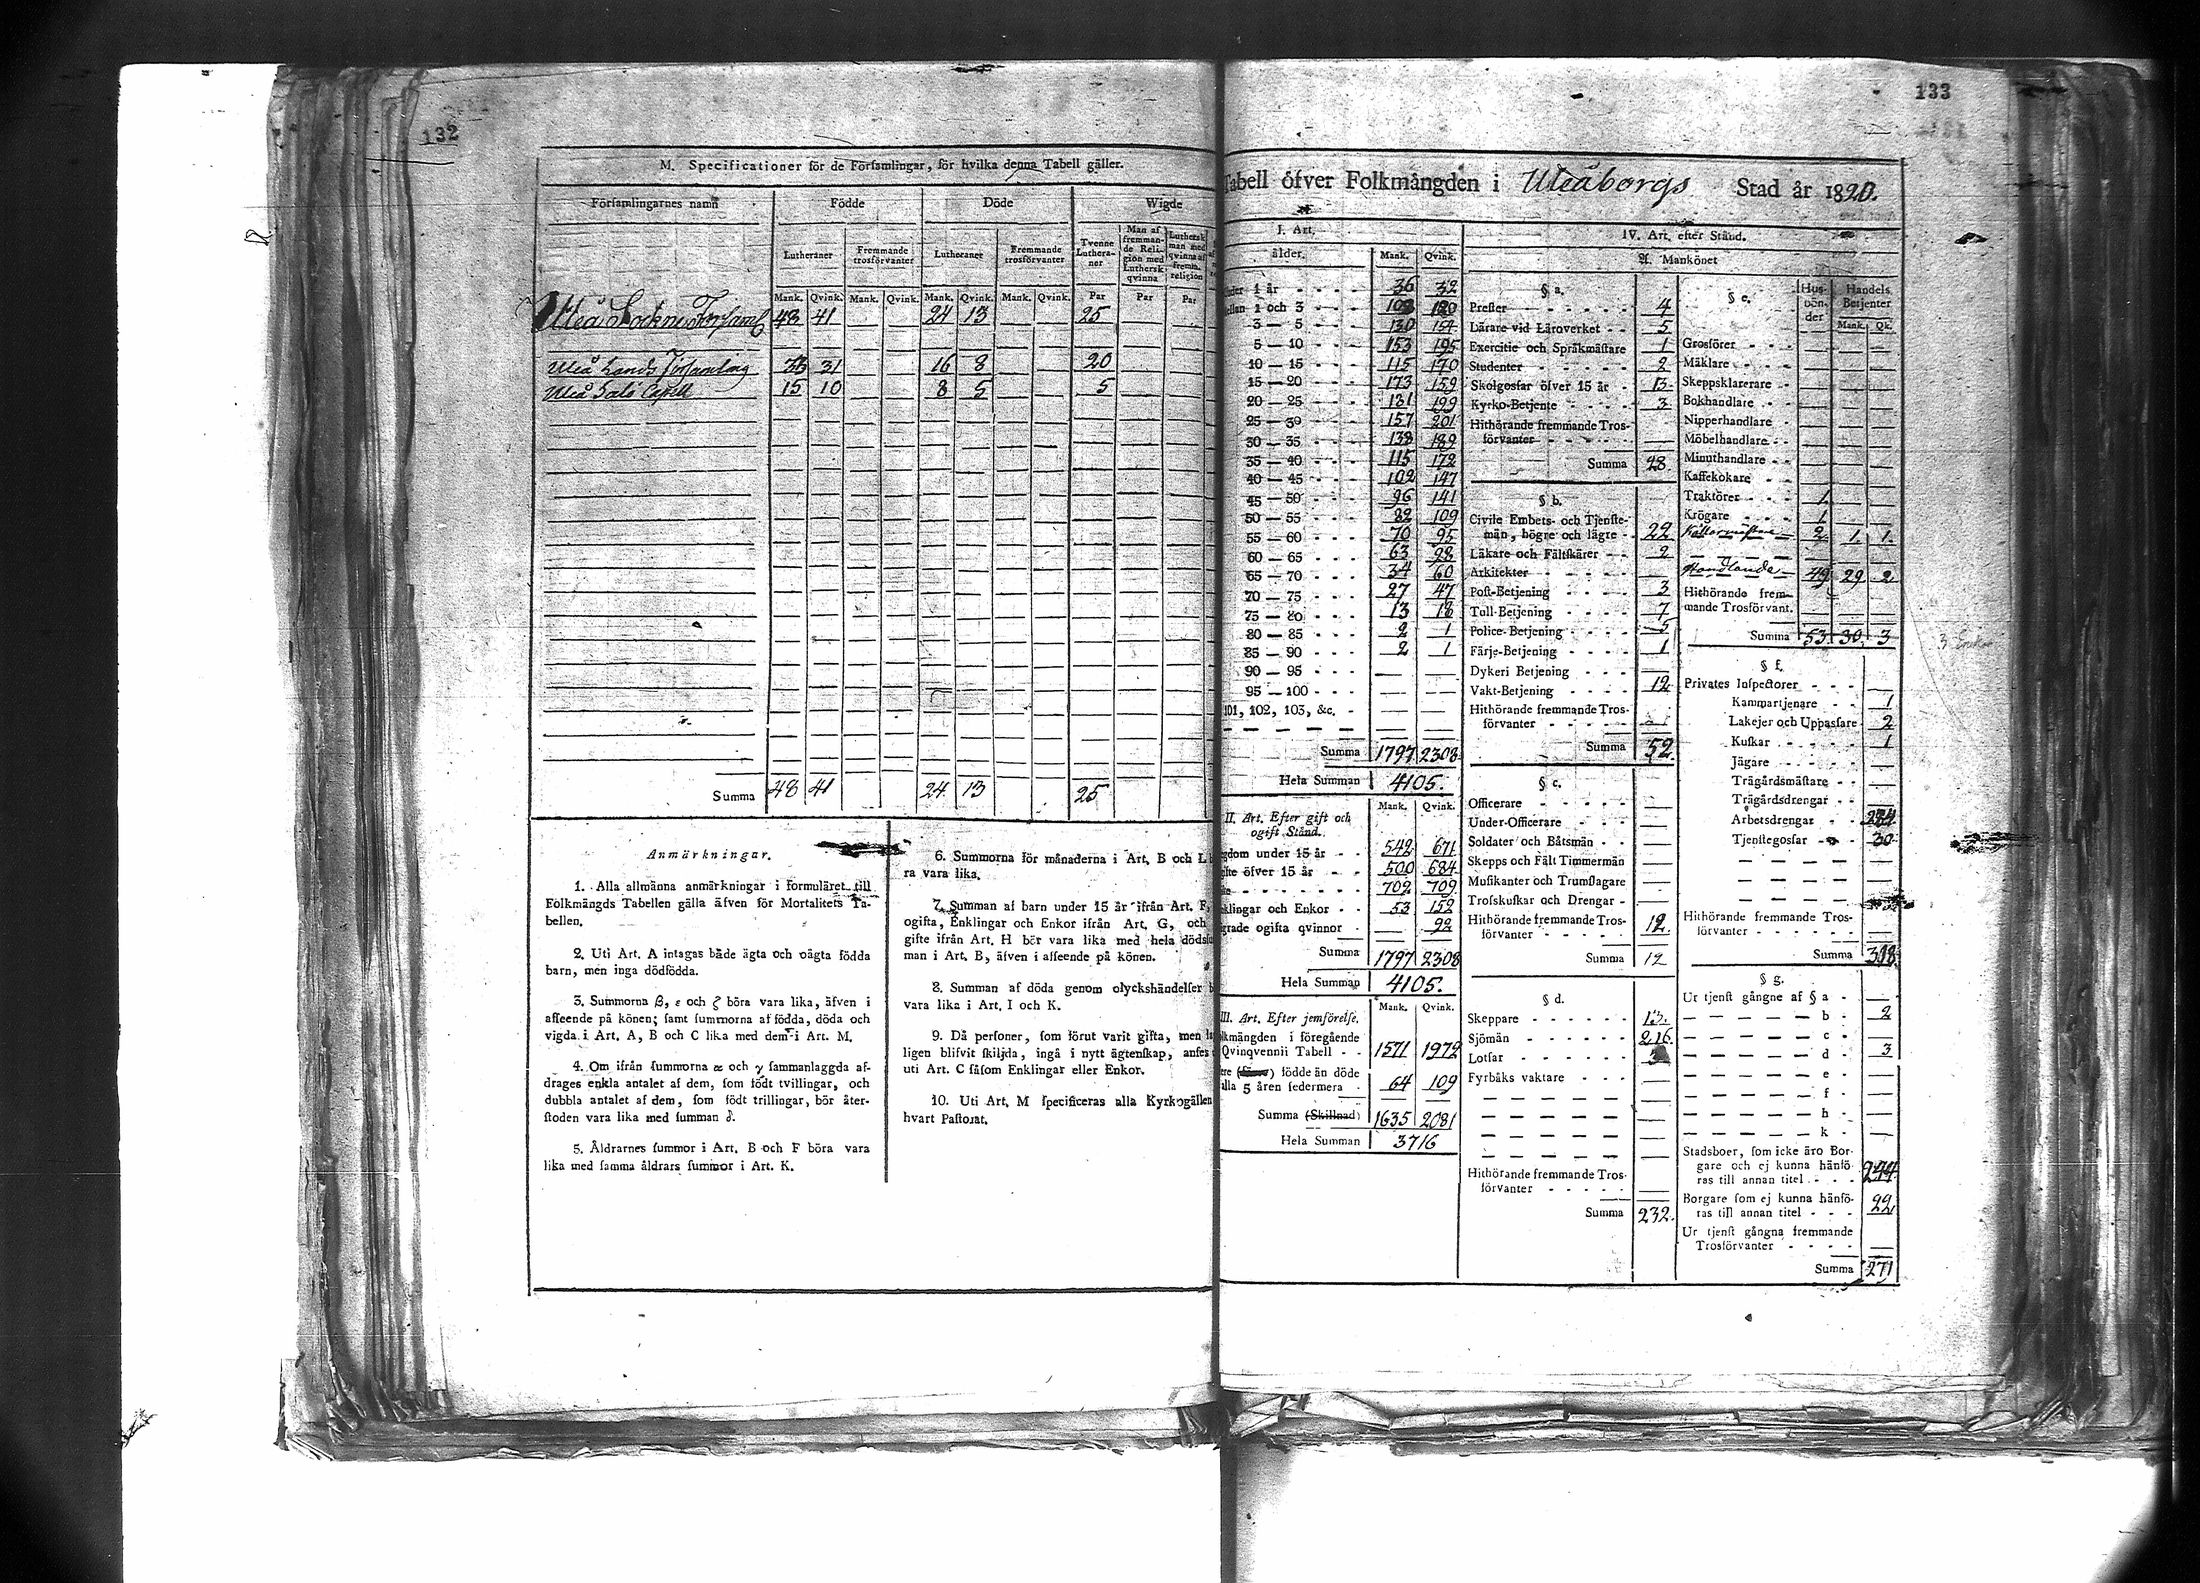 132
M. Specificationer för de Församlingar, för hvilka denna Tabell gäller.
Församlingarnes namn
Födde
Döde
Wigde
Lutheraner
Fremmande trosförvanter
Lutheraner
Fremmande trosförvanter
Tvenne Lutheraner
Man af fremmande Religion med Luthersk qvinna
Luthersk man med qvinna af fremm. religion
Mank. Qvink. Mank. Qvink. Mank. Qvink. Mank. Qvink. Par Par Par
Uleå Sockne Församl 48 41 24 13 25
Uleå Lands Församling 33 31 16 8 20
Uleå Salo Capell 15 10 8 5 5
Summa 48 41 24 13 25
Anmärkningar.
1. Alla allmänna anmärkningar i formuläret till
Folkmängds Tabellen gälla äfven för Mortalitets Ta-
bellen.
2. Uti Art. A intagas både ägta och oägta födda
barn, men inga dödfödda.
3. Summorna β, ε och ζ böra vara lika, äfven i
afseende på könen; samt summorna af födda, döda och
vigda i Art. A, B och C lika med dem i Art. M.
4. Om ifrån summorna α och γ sammanlaggda af-
drages enkla antalet af dem, som födt tvillingar, och
dubbla antalet af dem, som födt trillingar, bör åter-
stoden vara lika med summan δ.
5. Åldrarnes summor i Art. B och F böra vara
lika med samma åldrars summor i Art. K.
6. Summorna för månaderna i Art. B och L
ra vara lika.
7. Summan af barn under 15 år ifrån Art. F,
ogifta, Enklingar och Enkor ifrån Art. G, och
gifte ifrån Art. H bör vara lika med hela döds
man i Art. B, äfven i afseende på könen.
8. Summan af döda genom olyckshändelser
vara lika i Art. I och K.
9. Då personer, som förut varit gifta, men
ligen blifvit skiljda, ingå i nytt ägtenskap, anses
uti Art. C såsom Enklingar eller Enkor.
10. Uti Art. M specificeras alla Kyrkogällen
hvart Pastorat.
133
Tabell öfver Folkmängden i Uleåborgs Stad år 1820.
I. Art.
ålder. Mank. Qvink.
Under 1 år 36 32
mellan 1 och 3
3 — 5 130 154
5 — 10 153 195
10 — 15 115 170
15 — 20 173 159
20 — 25 131 199
25 — 30 157 201
30 — 35 138 189
35 — 40 115 172
40 — 45 102 147
45 — 50 96 141
50 — 55 82 109
55 — 60 70 95
60 — 65 63 98
65 — 70 34 60
70 — 75 27 47
75 — 80 13 18
80 — 85 2 1
85 — 90 2 1
90 — 95
95 — 100
101, 102, 103, &c.
Summa 1797 2308
Hela Summan 4105.
Mank. Qvink.
II. Art. Efter gift och
ogift Stånd.
gdom under 15 år 542 671
gifte öfver 15 år 500 684
702 709
klingar och Enkor 53 152
grade ogifta qvinnor 92
Summa 1797 2308
Hela Summan 4105.
Mank. Qvink.
III. Art. Efter jemförelse.
lkmängden i föregående
Qvinqvennii Tabell 1571 1972
födde än döde
alla 5 åren sedermera 64 109
Summa (Skillnad) 1635 2081
Hela Summan 3716
IV. Art. efter Stånd.
A. Mankönet
§ a.
Prester 4
Lärare vid Läroverket 5
Exercitie och Språkmästare 1
Studenter 2
Skolgossar öfver 15 år 13
Kyrko-Betjente 3
Hithörande fremmande Tros-
förvanter
Summa 28
§ b.
Civile Embets- och Tjenste-
män, högre och lägre 22
Läkare och Fältskärer 2
Arkitekter
Post-Betjening 3
Tull-Betjening 7
Police-Betjening 5
Färje-Betjening 1
Dykeri Betjening
Vakt-Betjening 12
Hithörande fremmande Tros-
förvanter
Summa 52
§ c.
Officerare
Under-Officerare
Soldater och Båtsmän
Skepps och Fält Timmermän
Musikanter och Trumslagare
Trosskuskar och Drengar
Hithörande fremmande Tros-
förvanter 12
Summa 12
§ d.
Skeppare 13
Sjömän 216
Lotsar 3
Fyrbåks vaktare
Hithörande fremmande Tros-
förvanter
Summa 232
§ e.
Husbönder
Handels Betjenter
Mank. Qk.
Grosförer
Mäklare
Skeppsklarerare
Bokhandlare
Nipperhandlare
Möbelhandlare
Minuthandlare
Kaffekokare
Traktörer 1
Krögare 1
Källarmästare 2 1 1
Handlande 49 29 2
Hithörande frem-
mande Trosförvant.
Summa 53 30 3
§ f.
Privates Inspectorer
Kammartjenare 1
Lakejer och Uppassare 2
Kuskar 1
Jägare
Trägårdsmästare
Trägårdsdrengar
Arbetsdrengar 284
Tjenstegossar 30
Hithörande fremmande Tros-
förvanter
Summa 318
§ g.
Ur tjenst gångne af § a
b 2
c
d 3
e
f
h
k
Stadsboer, som icke äro Bor-
gare och ej kunna hänfö-
ras till annan titel 244
Borgare som ej kunna hänfö-
ras till annan titel 22
Ur tjenst gångna fremmande
Trosförvanter
Summa 271